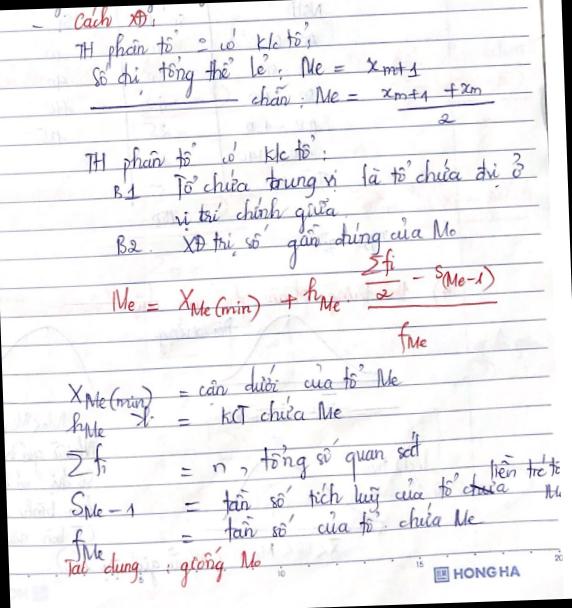 - Cách XĐ:
TH phân tổ = có k/c tổ,
Số đvị tổng thể lẻ: Me = x_{m+1}
chẵn: Me = \frac{x_{m+1} + x_m}{2}
TH phân tổ có k/c tổ:
B1 Tổ chứa trung vị là tổ chứa đvị ở
vị trí chính giữa
B2. XĐ trị số gần đúng của Mo
Me = X_{Me(min)} + h_{Me} \frac{\frac{\sum fi}{2} - S_{(Me-1)}}{f_{Me}}
X_{Me(min)} = cận dưới của tổ Me
h_{Me} = KCT chứa Me
\sum fi = n, tổng số quan sát
S_{Me-1} = tần số tích luỹ của tổ liền trc tổ
f_{Me} = tần số của tổ chứa Me
Tác dụng: giống Mo
10 15 20
HONG HA